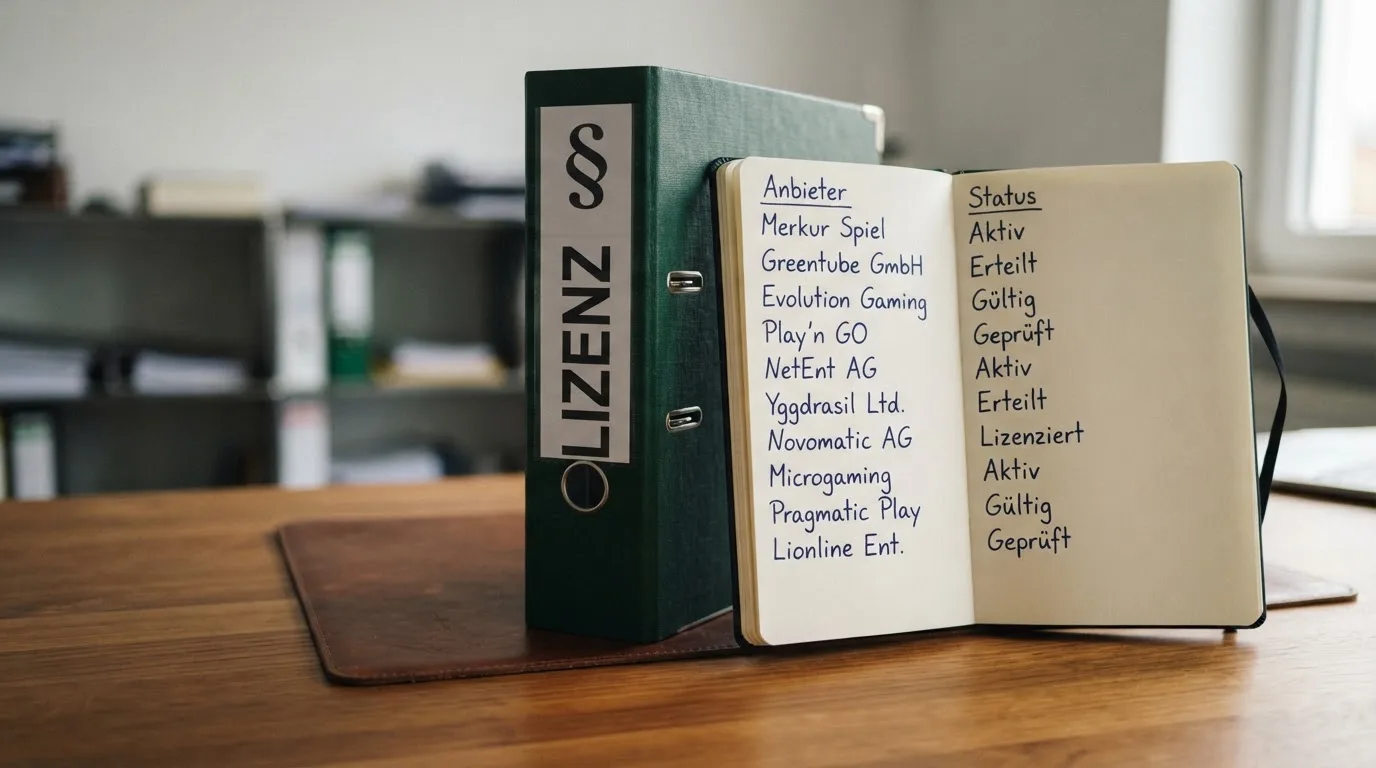 LIZENZ §
Anbieter
Merkur Spiel
Greentube GmbH
Evolution Gaming
Play'n GO
NetEnt AG
Yggdrasil Ltd.
Novomatic AG
Microgaming
Pragmatic Play
Lionline Ent.
Status
Aktiv
Erteilt
Gültig
Geprüft
Aktiv
Erteilt
Lizenziert
Aktiv
Gültig
Geprüft